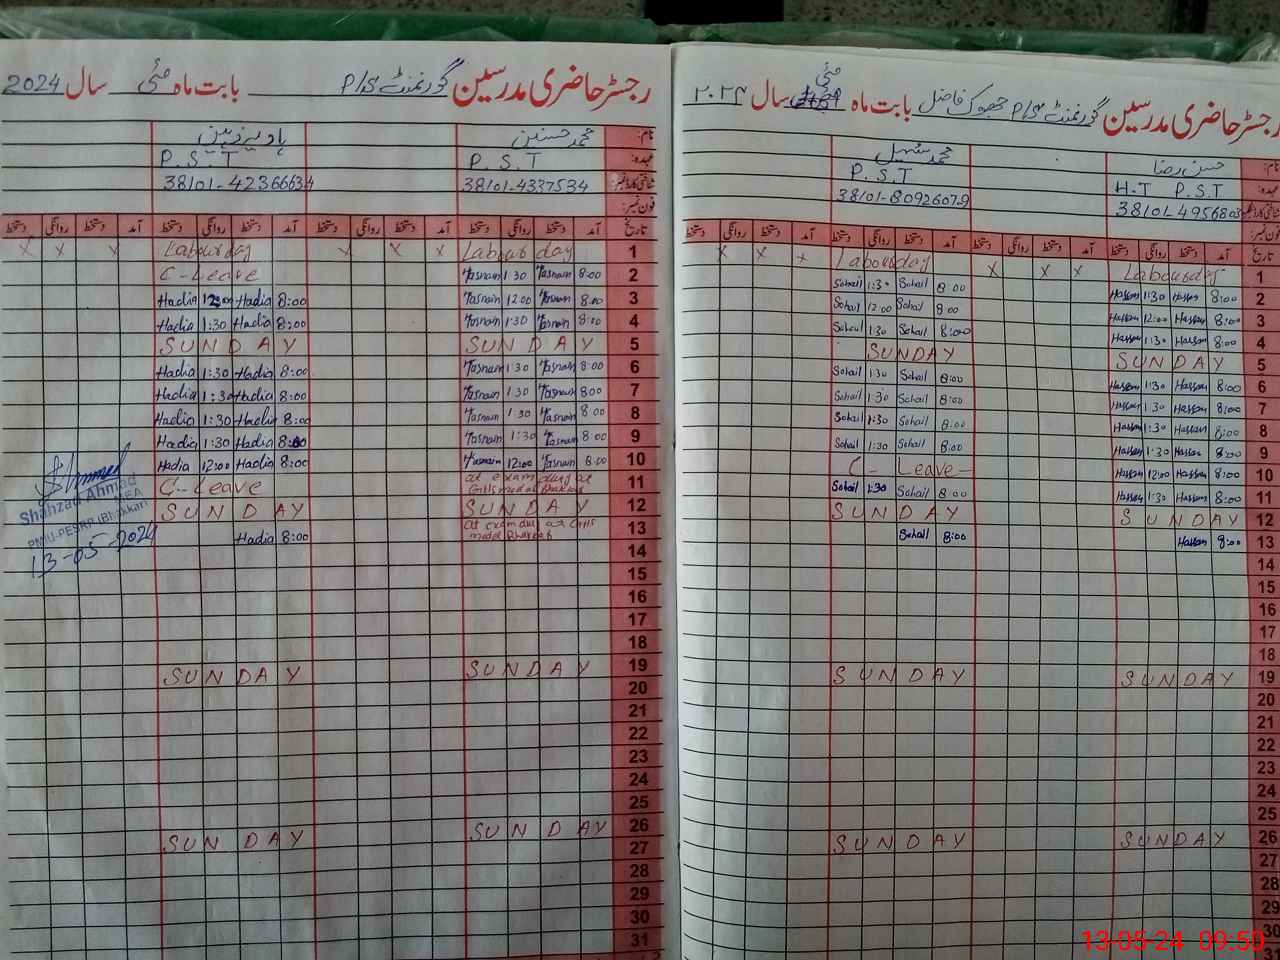 رجسٹر حاضری مدرسین گورنمنٹ P/S بابت ماہ مئی سال 2024
نام: محمد حسنین
عہدہ: P.S.T P.S.T
شناختی کارڈ نمبر: 38101-4337534 38101-42366634
فون نمبر:
تاریخ آمد دستخط روانگی دستخط آمد دستخط روانگی دستخط آمد دستخط روانگی دستخط آمد دستخط روانگی دستخط
1 Labour day x x x Labour day x x x
2 8:00 Hasnain 1:30 Hasnain C-Leave
3 8:00 Hasnain 12:00 Hasnain 8:00 Hadia 12:00 Hadia
4 8:00 Hasnain 1:30 Hasnain 8:00 Hadia 1:30 Hadia
5 SUNDAY SUNDAY
6 8:00 Hasnain 1:30 Hasnain 8:00 Hadia 1:30 Hadia
7 8:00 Hasnain 1:30 Hasnain 8:00 Hadia 1:30 Hadia
8 8:00 Hasnain 1:30 Hasnain 8:00 Hadia 1:30 Hadia
9 8:00 Hasnain 1:30 Hasnain 8:00 Hadia 1:30 Hadia
10 8:00 Hasnain 12:00 Hasnain 8:00 Hadia 12:00 Hadia
11 at exam duty at Girls model Bhakkar C-Leave
12 SUNDAY SUNDAY
13 at exam duty at Girls model Bhakkar 8:00 Hadia
14
15
16
17
18
19 SUNDAY SUNDAY
20
21
22
23
24
25
26 SUNDAY SUNDAY
27
28
29
30
31
Shahzad Ahmad
MEA
PMIU-PESRP (Bhakkar)
13-05-2024
رجسٹر حاضری مدرسین گورنمنٹ P/S جھوک فاضل بابت ماہ مئی سال ۲۰۲۴
نام: حسن رضا محمد سہیل
عہدہ: H.T P.S.T P.S.T
شناختی کارڈ نمبر: 38101-4956803 38101-8092607-9
فون نمبر:
تاریخ آمد دستخط روانگی دستخط آمد دستخط روانگی دستخط آمد دستخط روانگی دستخط آمد دستخط روانگی دستخط
1 Labourday x x x Labourday x x x
2 8:00 Hassan 1:30 Hassan 8:00 Sohail 1:30 Sohail
3 8:00 Hassan 12:00 Hassan 8:00 Sohail 12:00 Sohail
4 8:00 Hassan 1:30 Hassan 8:00 Sohail 1:30 Sohail
5 SUNDAY SUNDAY
6 8:00 Hassan 1:30 Hassan 8:00 Sohail 1:30 Sohail
7 8:00 Hassan 1:30 Hassan 8:00 Sohail 1:30 Sohail
8 8:00 Hassan 1:30 Hassan 8:00 Sohail 1:30 Sohail
9 8:00 Hassan 1:30 Hassan 8:00 Sohail 1:30 Sohail
10 8:00 Hassan 12:00 Hassan C-Leave-
11 8:00 Hassan 1:30 Hassan 8:00 Sohail 1:30 Sohail
12 SUNDAY SUNDAY
13 8:00 Hassan 8:00 Sohail
14
15
16
17
18
19 SUNDAY SUNDAY
20
21
22
23
24
25
26 SUNDAY SUNDAY
27
28
29
30
31
13-05-24 09:50